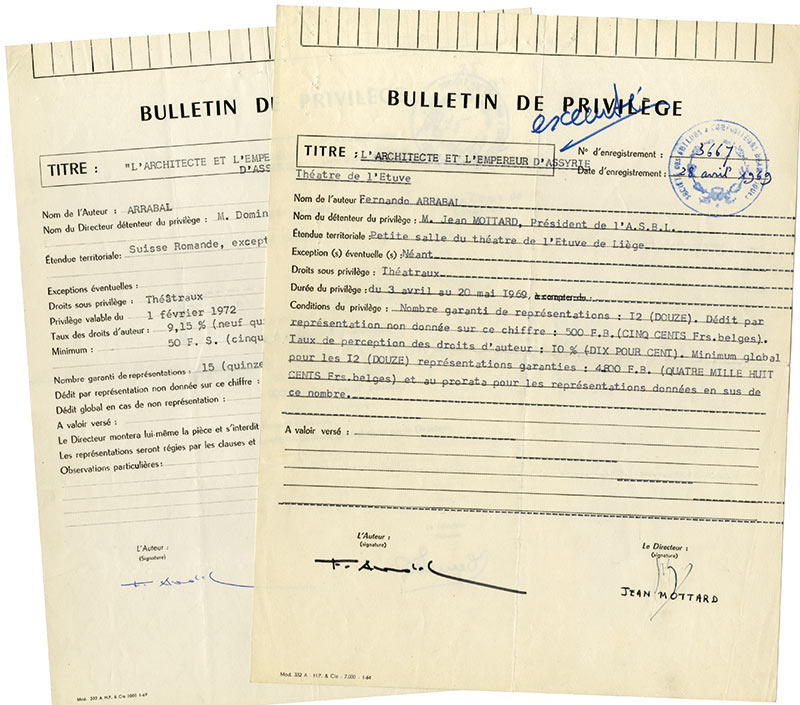 BULLETIN D
TITRE : "L'ARCHITECTE ET L'EMPE
D'ASSY
Nom de l'Auteur : ARRABAL
Nom du Directeur détenteur du privilège : M. Domin
Étendue territoriale: Suisse Romande, except
Exceptions éventuelles :
Droits sous privilège : Théâtraux
Privilège valable du 1 février 1972
Taux des droits d'auteur : 9,15 % (neuf qu
Minimum : 50 F. S. (cinqu
Nombre garanti de représentations : 15 (quinze
Dédit par représentation non donnée sur ce chiffre :
Dédit global en cas de non représentation :
A valoir versé :
Le Directeur montera lui-même la pièce et s'interdit
Les représentations seront régies par les clauses et
Observations particulières :
L'Auteur :
(Signature)
Mod. 332 A - H.P. & Cie
BULLETIN DE PRIVILÈGE
executé
TITRE : L'ARCHITECTE ET L'EMPEREUR D'ASSYRIE
Théatre de l'Etuve
N° d'enregistrement : 3667
Date d'enregistrement : 28 avril 1969
Nom de l'auteur Fernando ARRABAL
Nom du détenteur du privilège : M. Jean MOTTARD, Président de l'A.S.B.L.
Étendue territoriale Petite salle du théatre de l'Etuve de Liège
Exception (s) éventuelle (s) : Néant
Droits sous privilège : Théatraux
Durée du privilège : du 3 avril au 20 mai I969, à compter du :
Conditions du privilège : Nombre garanti de représentations : I2 (DOUZE). Dédit par
représentation non donnée sur ce chiffre : 500 F.B.(CINQ CENTS Frs.belges).
Taux de perception des droits d'auteur : IO % (DIX POUR CENT). Minimum global
pour les I2 (DOUZE) représentations garanties : 4.800 F.B. (QUATRE MILLE HUIT
CENTS Frs.belges) et au prorata pour les représentations données en sus de
ce nombre.
A valoir versé :
L'Auteur :
(signature)
Le Directeur :
(signature)
JEAN MOTTARD
Mod. 332 A - H.P. & Cie - 7.000 - 1-64